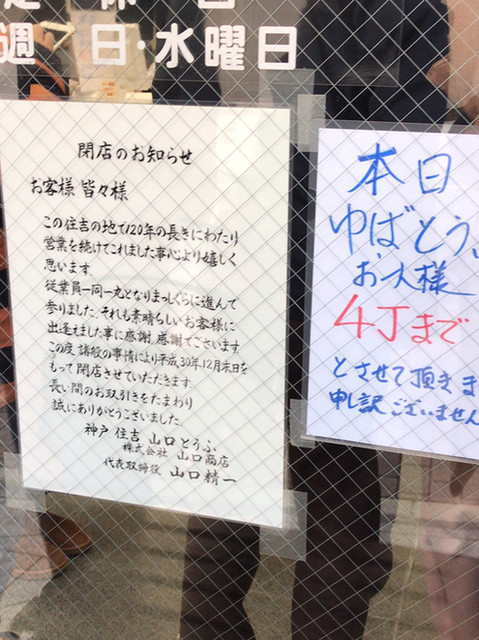 定休日
週 日・水曜日
閉店のお知らせ
お客様 皆々様
この住吉の地で120年の長きにわたり
営業を続けてこれました事心より嬉しく
思います。
従業員一同一丸となりまっしぐらに進んで
参りました。それも素晴らしいお客様に
出逢えました事に感謝、感謝でございます
この度、諸般の事情により平成30年12月末日を
もって閉店させていただきます
長い間のお取引きをたまわり
誠にありがとうございました。
神戸 住吉 山口とうふ
株式会社 山口商店
代表取締役 山口精一
本日
ゆばとう
お一人様
4丁まで
とさせて頂きま
申し訳ございません